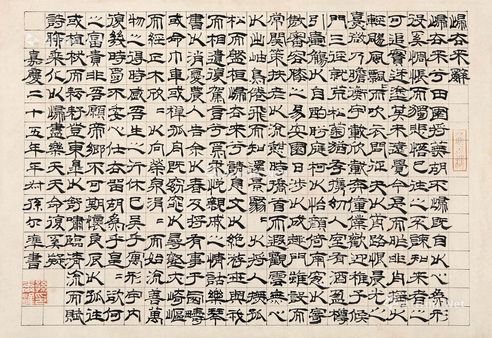 歸去來辭
歸去來兮田園將蕪胡不歸既自以心為形
役奚惆悵而獨悲悟已往之不諫知來者之
可追實迷途其未遠覺今是而昨非舟搖〻以
輕颺風飄〻而吹衣問征夫以前路恨晨光之
熹微乃瞻衡宇載欣載奔僮僕歡迎稚子候
門三徑就荒松菊猶存攜幼入室有酒盈樽
引壺觴以自酌眄庭柯以怡顏倚南窗以寄
傲審容膝之易安園日涉以成趣門雖設而
常關策扶老以流憩時矯首而遐觀雲無心
以出岫鳥倦飛而知還景翳〻以將入撫孤
松而盤桓歸去來兮請息交以絕游世與我
而相遺復駕言兮焉求悅親戚之情話樂琴
書以消憂農人告余以春及將有事于西疇
或命巾車或棹孤舟既窈窕以尋壑亦崎嶇
而經丘木欣〻以向榮泉涓〻而始流善萬
物之得時感吾生之行休已矣乎寓形宇內
復幾時曷不委心任去留胡為乎遑〻欲何
之富貴非吾願帝鄉不可期懷良辰以孤往
或植杖而耘耔登東皋以舒嘯臨清流而賦
詩聊乘化以歸盡樂夫天命復奚疑
嘉慶二十五年平叔孫尔準書